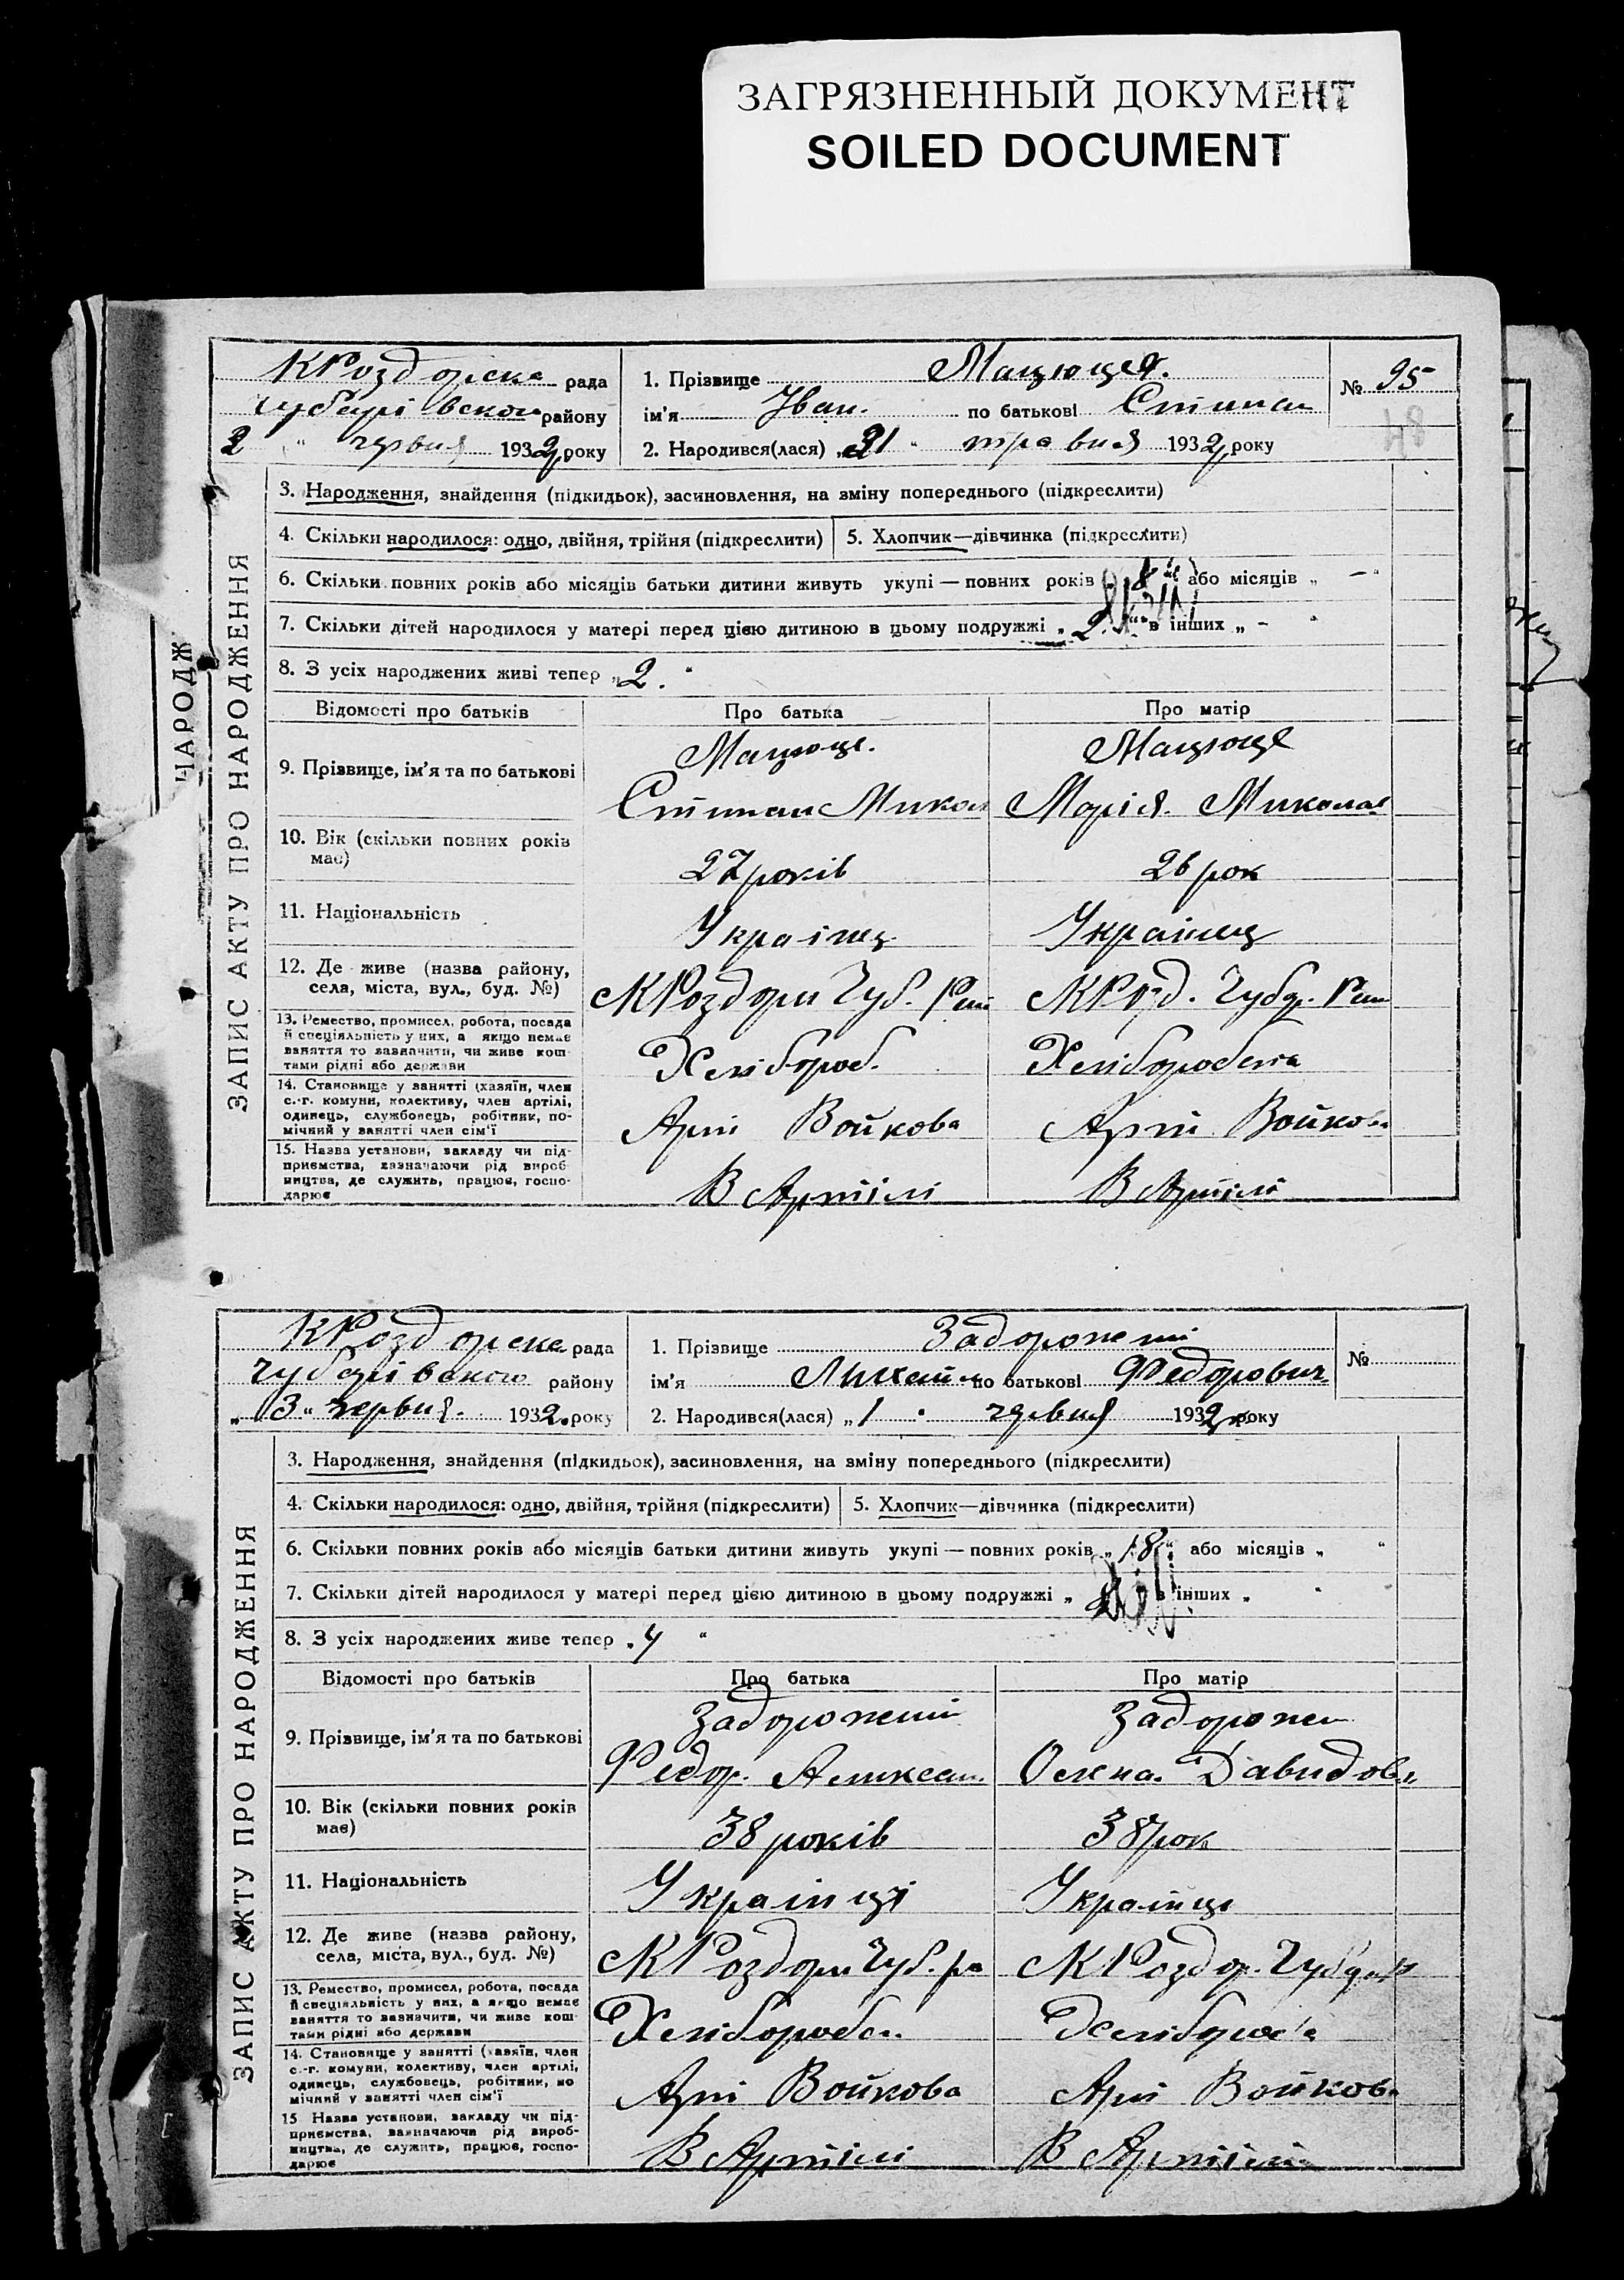 ЗАГРЯЗНЕННЫЙ ДОКУМЕНТ
SOILED DOCUMENT
КРоздорська рада
Чубарівского району
2 " червня 1932 року
1. Прізвище Мацюця.
ім'я Іван. по батькові Степан
2. Народився(лася) „31 " травня 1932 року
№ 95
48
ЗАПИС АКТУ ПРО НАРОДЖЕННЯ
НАРОДЖ
3. Народження, знайдення (підкидьок), засиновлення, на зміну попереднього (підкреслити)
4. Скільки народилося: одно, двійня, трійня (підкреслити) 5. Хлопчик—дівчинка (підкреслити)
6. Скільки повних років або місяців батьки дитини живуть укупі — повних років „ 8 " або місяців „ — "
7. Скільки дітей народилося у матері перед цією дитиною в цьому подружжі „ 2. " в інших „ - "
8. З усіх народжених живі тепер „ 2. "
Відомості про батьків Про батька Про матір
9. Прізвище, ім'я та по батькові
Мацюця. Мацюця
Степан Микол Марія. Миколае
10. Вік (скільки повних років має)
27 років 26 рок
11. Національність
Українец Українец
12. Де живе (назва району,
села, міста, вул., буд. №)
КРоздори Чуб. Рай КРозд. Чубар. Рай
13. Ремество, промисел, робота, посада
й спеціяльність у них, а якщо немає
заняття то зазначити, чи живе кош-
тами рідні або держави
Хлібороб. Хлібороби
14. Становище у занятті (хазяїн, член
с.-г. комуни, колективу, член артілі,
одинець, службовець, робітник, по-
мічний у занятті член сім'ї
Арті Войкова Арті Войкова
15. Назва установи, закладу чи під-
приємства, зазначаючи рід вироб-
ництва, де служить, працює, госпо-
дарює
В Артілі В Артілі
КРоздорська рада
Чубарівского району
„ 3 " червня. 1932. року
1. Прізвище Задорожній
ім'я Михайло по батькові Федорович.
2. Народився(лася) „ 1 " червня 1932 року
№
ЗАПИС АКТУ ПРО НАРОДЖЕННЯ
3. Народження, знайдення (підкидьок), засиновлення, на зміну попереднього (підкреслити)
4. Скільки народилося: одно, двійня, трійня (підкреслити) 5. Хлопчик—дівчинка (підкреслити)
6. Скільки повних років або місяців батьки дитини живуть укупі — повних років „ 18 " або місяців „ "
7. Скільки дітей народилося у матері перед цією дитиною в цьому подружжі „ в інших „ "
8. З усіх народжених живе тепер „ 4 "
Відомості про батьків Про батька Про матір
9. Прізвище, ім'я та по батькові
Задорожній Задорожн
Федор. Алексан. Олена Давидовн
10. Вік (скільки повних років має)
38 років 38 рок
11. Національність
Українці Українці
12. Де живе (назва району,
села, міста, вул., буд. №)
КРоздори Чуб. ра КРоздор. Чубар
13. Ремество, промисел, робота, посада
й спеціяльність у них, а якщо немає
заняття то зазначити, чи живе кош-
тами рідні або держави
Хлібороби Хлібороб
14. Становище у занятті (хазяїн, член
с.-г. комуни, колективу, член артілі,
одинець, службовець, робітник, по
мічний у занятті член сім'ї
Арті Войкова Арті Войкова
15 Назва установи, закладу чи під-
приємства, зазначаючи рід вироб-
ництва, де служить, працює, госпо-
дарює
В Артілі В Артілі